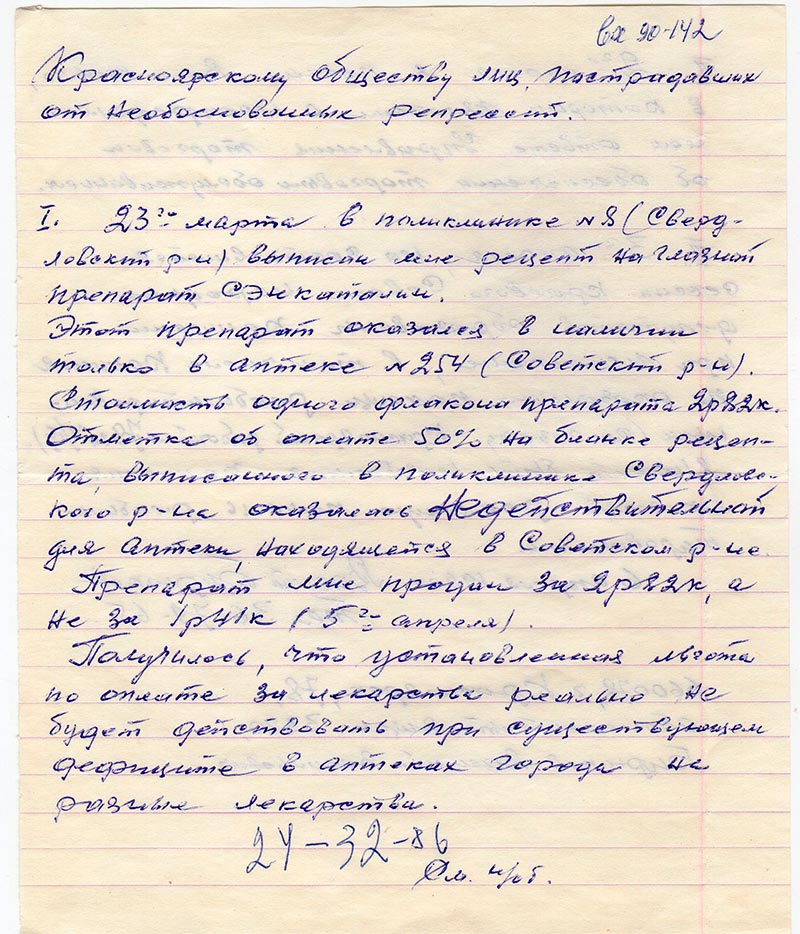 Вх 90-142
Красноярскому обществу лиц, пострадавших
от необоснованных репрессий.
I. 23го марта в поликлинике №8 (Сверд-
ловский р-н) выписали мне рецепт на глазной
препарат Сэнкаталин.
Этот препарат оказался в наличии
только в аптеке №254 (Советский р-н).
Стоимость одного флакона препарата 2р82к.
Отметка об оплате 50% на бланке рецеп-
та, выписанного в поликлинике Свердловс-
кого р-на оказалась недействительной
для аптеки, находящейся в Советском р-не.
Препарат мне продали за 2р82к, а
не за 1р41к (5го апреля).
Получилось, что установленная льгота
по оплате за лекарства реально не
будет действовать при существующем
дефиците в аптеках города на
разные лекарства.
24-32-86
См. н/об.